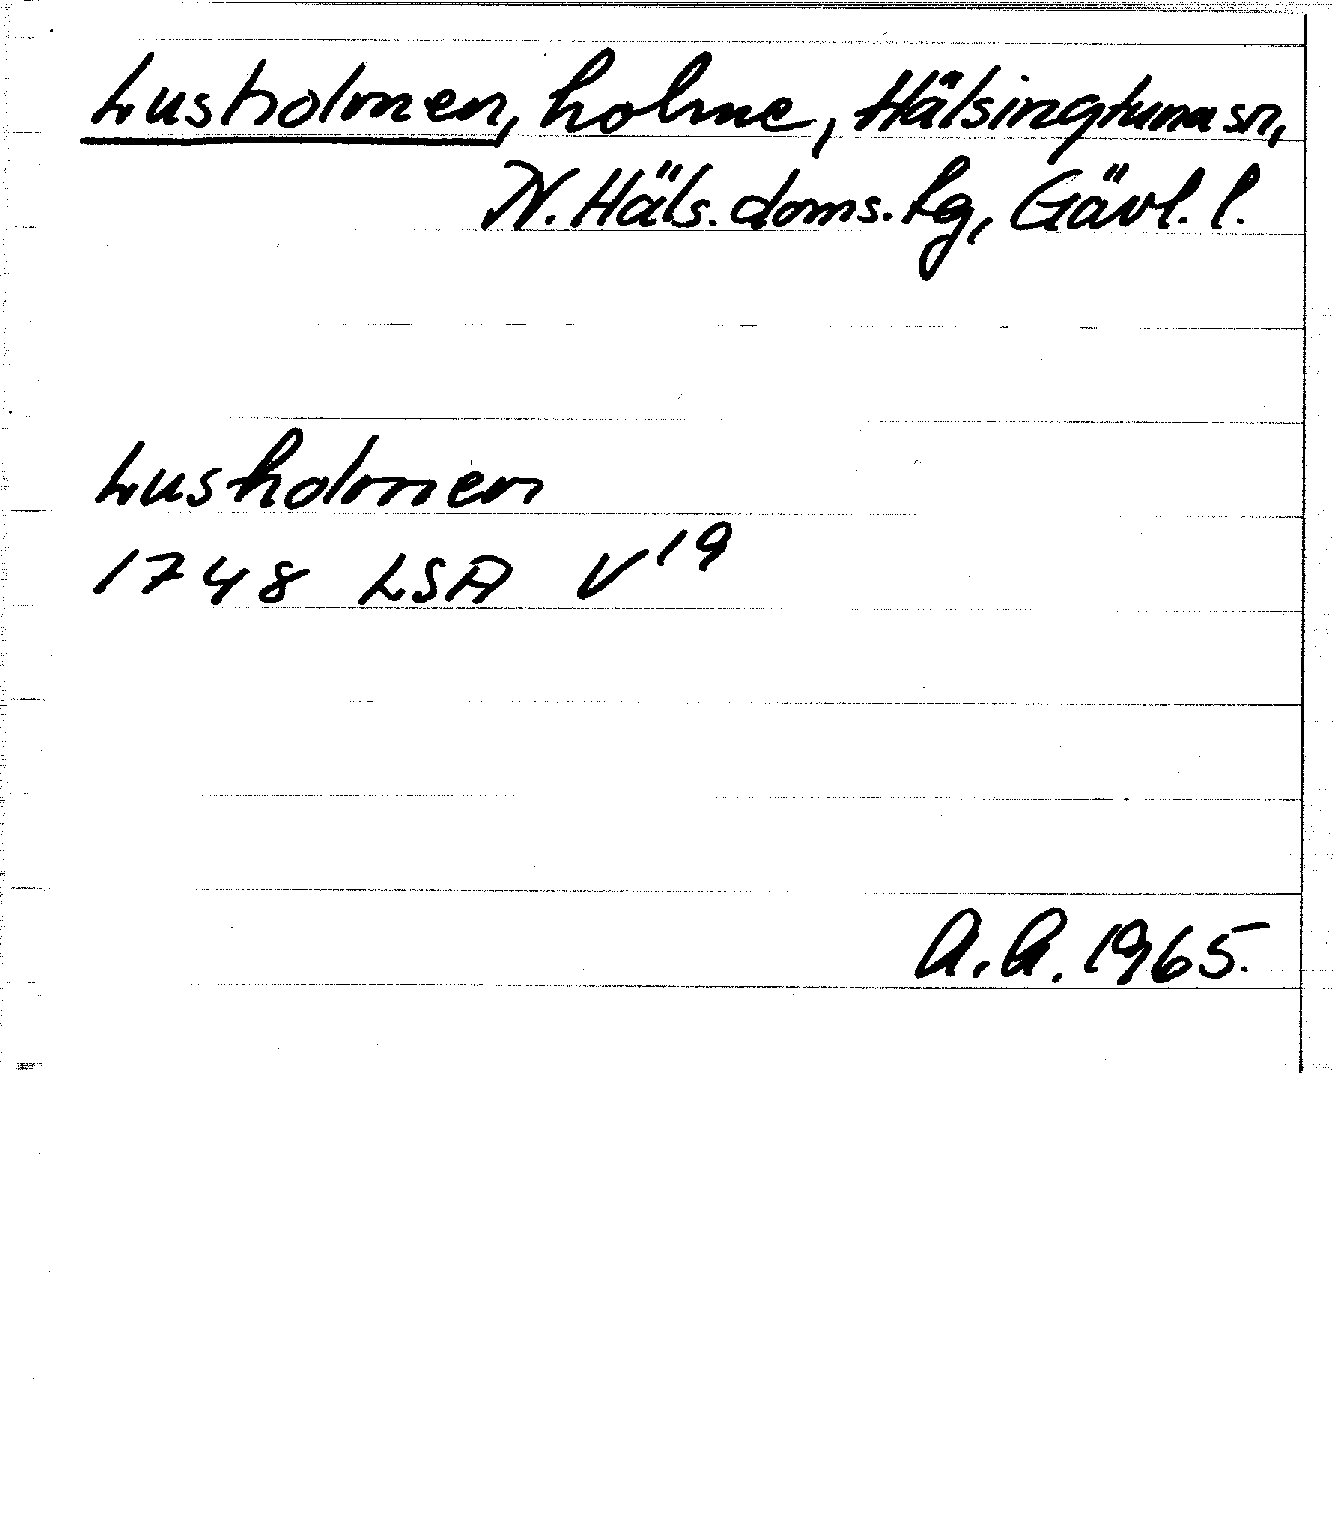 Lusholmen, holme, Hälsingtuna sn,
N. Häls. doms. hg, Gävl. l.
Lusholmen
1748 LSA V¹⁹
A.A. 1965.